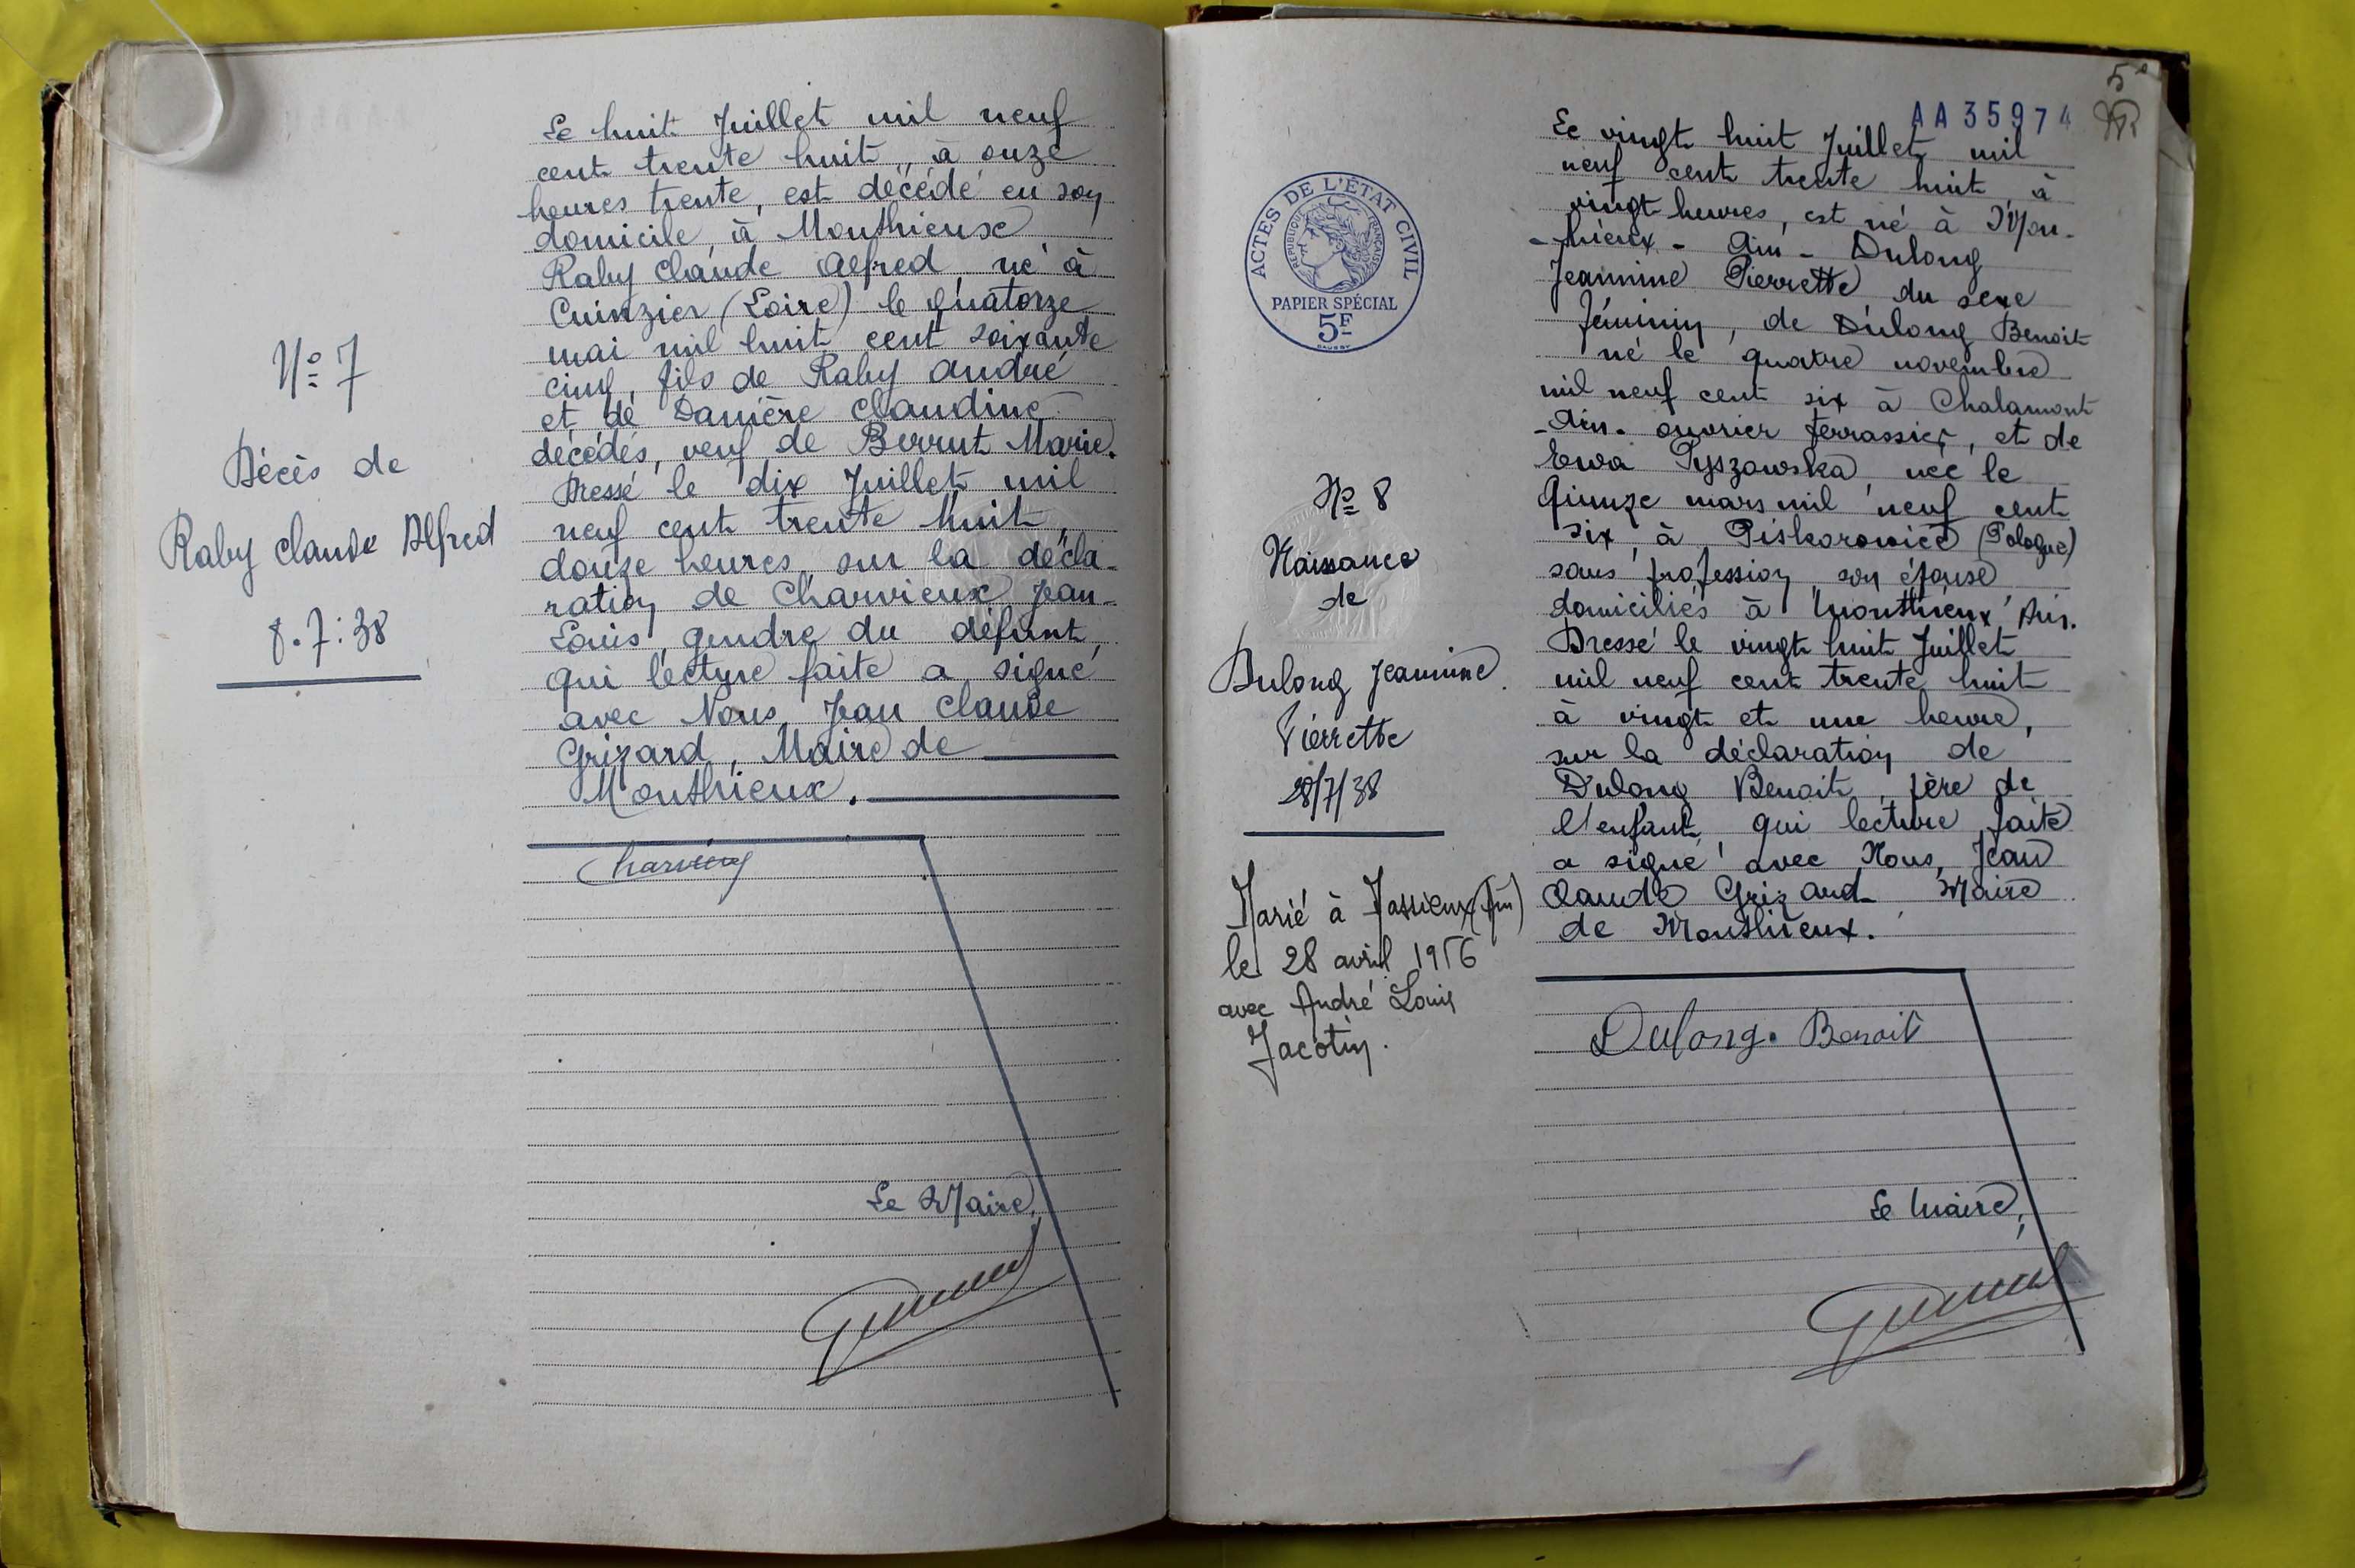 N° 7
Décès de
Raby Claude Alfred
8.7.38
Le huit Juillet mil neuf
cent trente huit, à onze
heures trente, est décédé en son
domicile, à Monthieux
Raby Claude Alfred, né à
Cuinzier (Loire) le quatorze
mai mil huit cent soixante
cinq, fils de Raby André
et de Danière Claudine
décédés, veuf de Berrut Marie.
Dressé le dix Juillet mil
neuf cent trente huit,
douze heures, sur la décla-
ration de Charvieux Jean-
Louis, gendre du défunt,
qui lecture faite a signé
avec Nous, Jean Claude
Grizard, Maire de
Monthieux.
Le Maire,
5
AA 35974
ACTES DE L'ÉTAT CIVIL
RÉPUBLIQUE FRANÇAISE
PAPIER SPÉCIAL
5F
N° 8
Naissance
de
Dulong Jeannine
Pierrette
28/7/38
Marié à Massieux (Ain)
le 28 avril 1956
avec André Louis
Jacotin.
Le vingt huit Juillet mil
neuf cent trente huit à
vingt heures, est né à Mon-
-thieux - Ain - Dulong
Jeannine Pierrette, du sexe
féminin, de Dulong Benoit
né le quatre novembre
mil neuf cent six à Chalamont
-Ain. ouvrier terrassier, et de
Ewa Pyszowska, née le
quinze mars mil neuf cent
six, à Piskorowice (Pologne)
sans profession, son épouse,
domiciliés à Monthieux, Ain.
Dressé le vingt huit Juillet
mil neuf cent trente huit
à vingt et une heure,
sur la déclaration de
Dulong Benoit, père de
l'enfant, qui lecture faite
a signé avec Nous, Jean
Claude Grizard Maire
de Monthieux.
Dulong. Benoit
Le Maire,